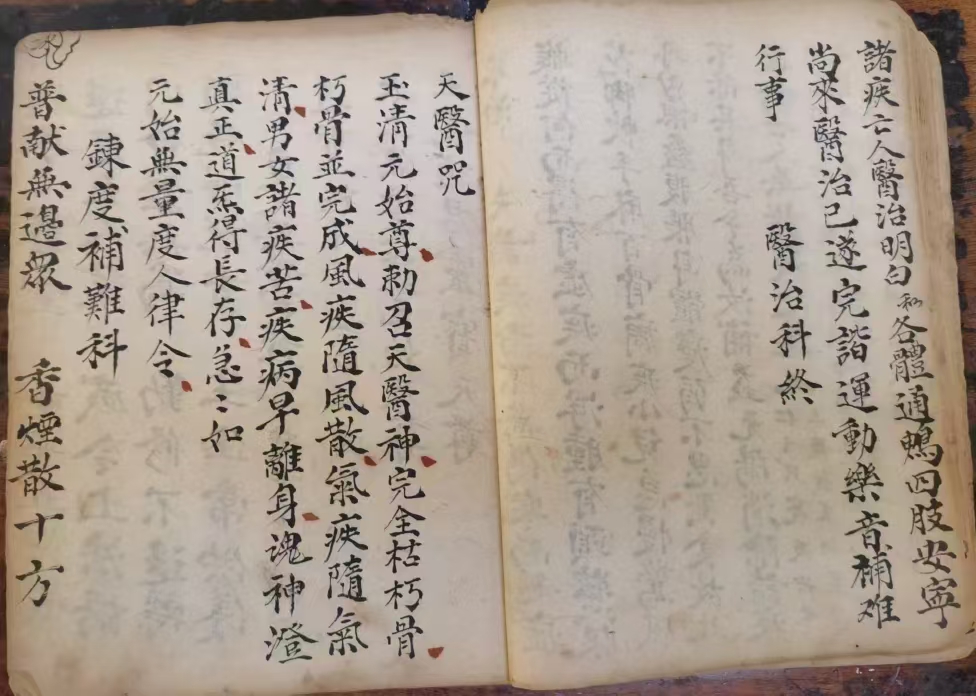 諸疾亡人醫治明白 和各體通鴆四肢安寧
尚來醫治已遂完諧運動樂音補难
行事　醫治科終
天醫咒
玉清元始尊勅召天醫神完全枯朽骨
朽骨並完成風疾隨風散氣疾隨氣
清男女諸疾苦疾病早離身魂神澄
真正道炁得長存急〻如
元始無量度人律令
鍊度補難科
普献無邊眾　香煙散十方